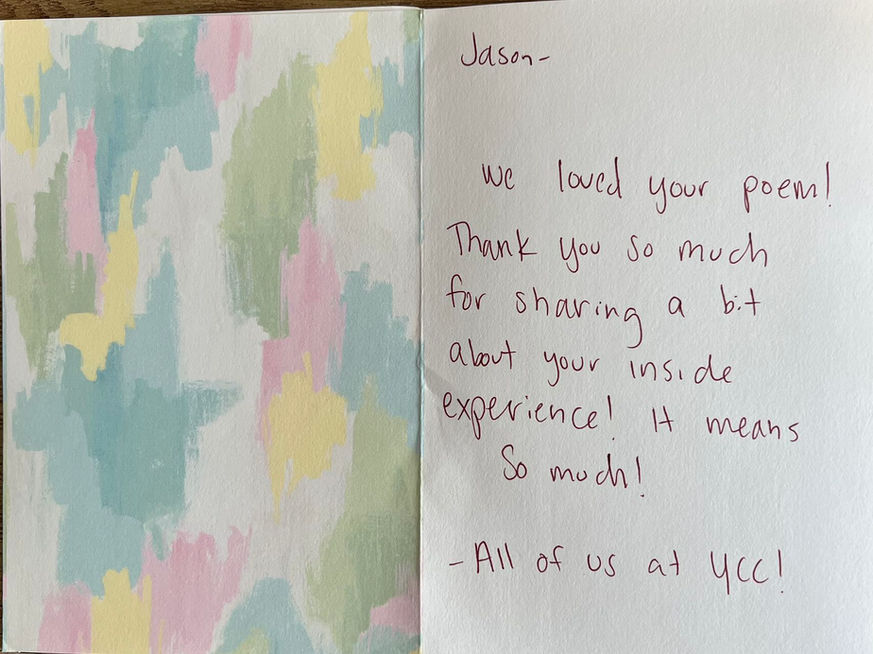 Jason-
We loved your poem!
Thank you so much
for sharing a bit
about your inside
experience! It means
So much!
-All of us at YCC!